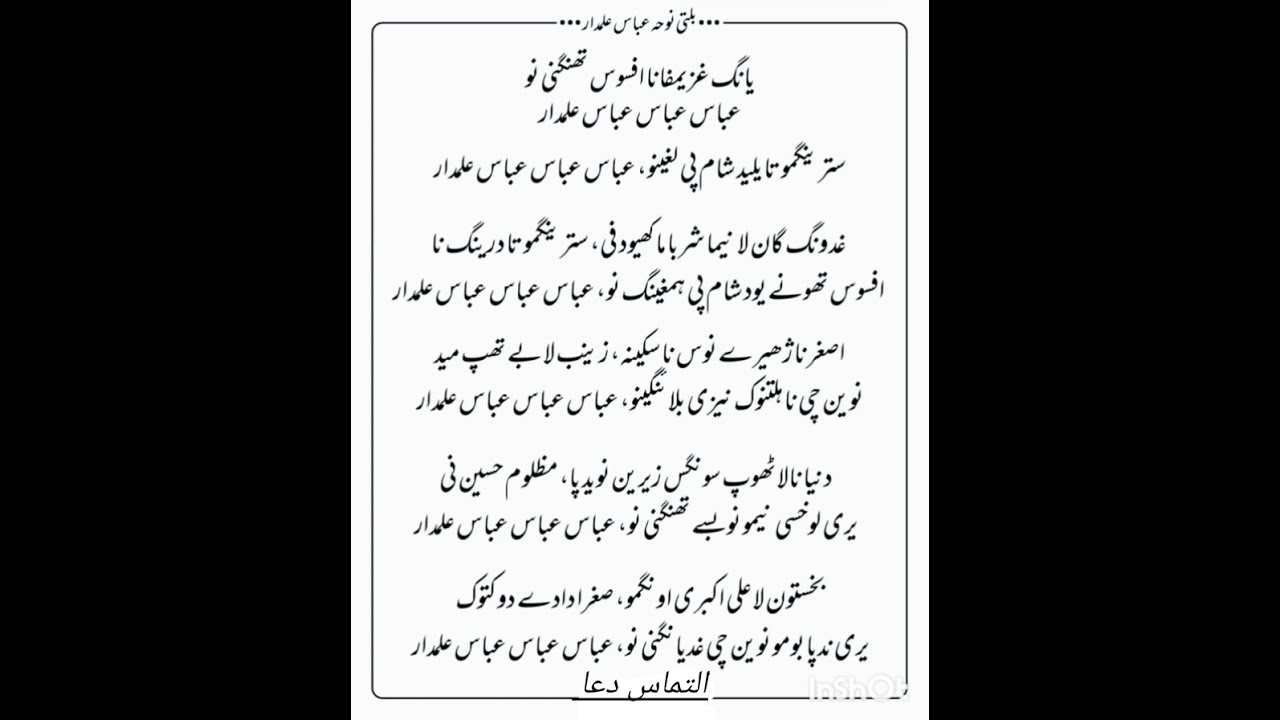 •••بلتی نوحہ عباس علمدار•••
یانگ غزیمفانا افسوس تھنگنی نو
عباس عباس عباس علمدار
سترینگمو تا یلید شام پی لغینو، عباس عباس عباس علمدار
غدونگ گان لا نیما شر باما کھیود فی، سترینگمو تا درینگ نا
افسوس تھونے یود شام پی ہمغینگ نو، عباس عباس عباس علمدار
اصغر نا ژھیرے نوس نا سکینہ، زینب لا بے تھپ مید
نوین چی نا ہلتنوک نیزی بلا ننگینو، عباس عباس عباس علمدار
دنیا نالا ٹھوپ سونگس زیرین نوید پا، مظلوم حسین نی
یری لوخسی نیمو نوبسے تھنگنی نو، عباس عباس عباس علمدار
بخستون لا علی اکبری اونگمو، صغرا دادے دوکتوک
یری ندپا بومو نوین چی غدیانگنی نو، عباس عباس عباس علمدار
التماس دعا
InShOt